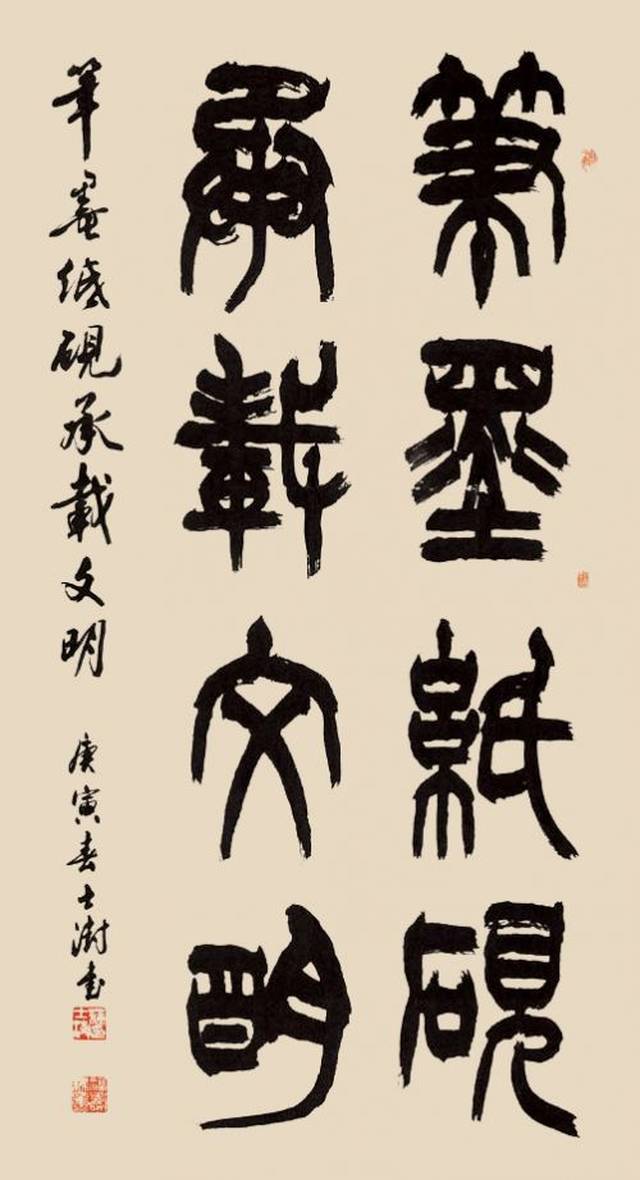 筆墨紙硯
承載文明
筆墨紙硯承載文明
庚寅春士澍書